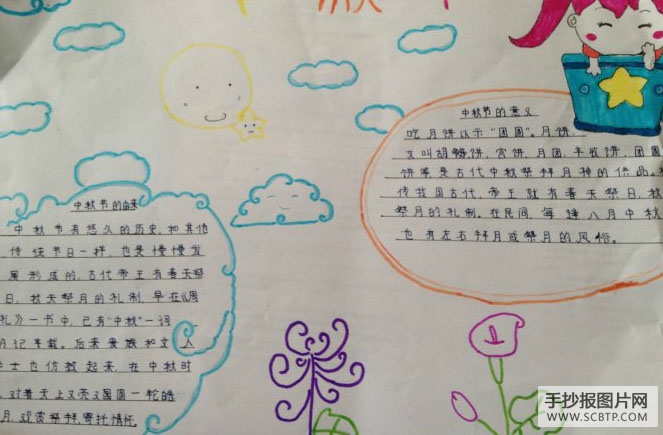 中秋节的意义
吃月饼以示“团圆”。月饼,
又叫胡饼、宫饼、月团、丰收饼、团圆
饼等是古代中秋祭拜月神的供品。
传我国古代,帝王就有春天祭日,秋
祭月的礼制。在民间,每逢八月中秋
也有左右拜月或祭月的风俗。
中秋节的由来
中秋节有悠久的历史,和其他
传统节日一样,也是慢慢发
展形成的,古代帝王有春天祭
日,秋天祭月的礼制,早在《周
礼》一书中,已有“中秋”一词
月记载。后来贵族和文人
学士也仿效起来,在中秋时
,对着天上又亮又圆一轮皓
月,观赏祭拜,寄托情怀
手抄报图片网
WWW.SCBTP.COM